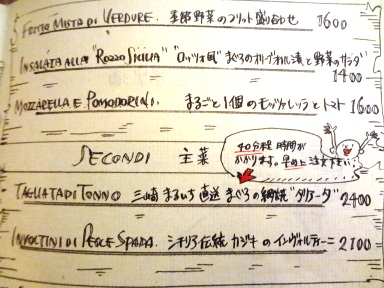 FRITTO MISTO DI VERDURE. 季節野菜のフリット盛り合わせ 1600
INSALATA ALLA "ROZZO SICILIA" "ロッツォ風" まぐろのオリーブオイル漬と野菜のサラダ
1400
MOZZARELLA E POMODORINI. まるごと1個のモッツァレッラとトマト 1600
SECONDI 主菜
40分程時間が
かかります。早めに注文下さい
TAGLIATA DI TONNO 三崎まるいち直送まぐろの網焼"タリアータ" 2400
INVOLTINI DI PESCE SPADA. シチリア伝統カジキのインヴォルティーニ 2100